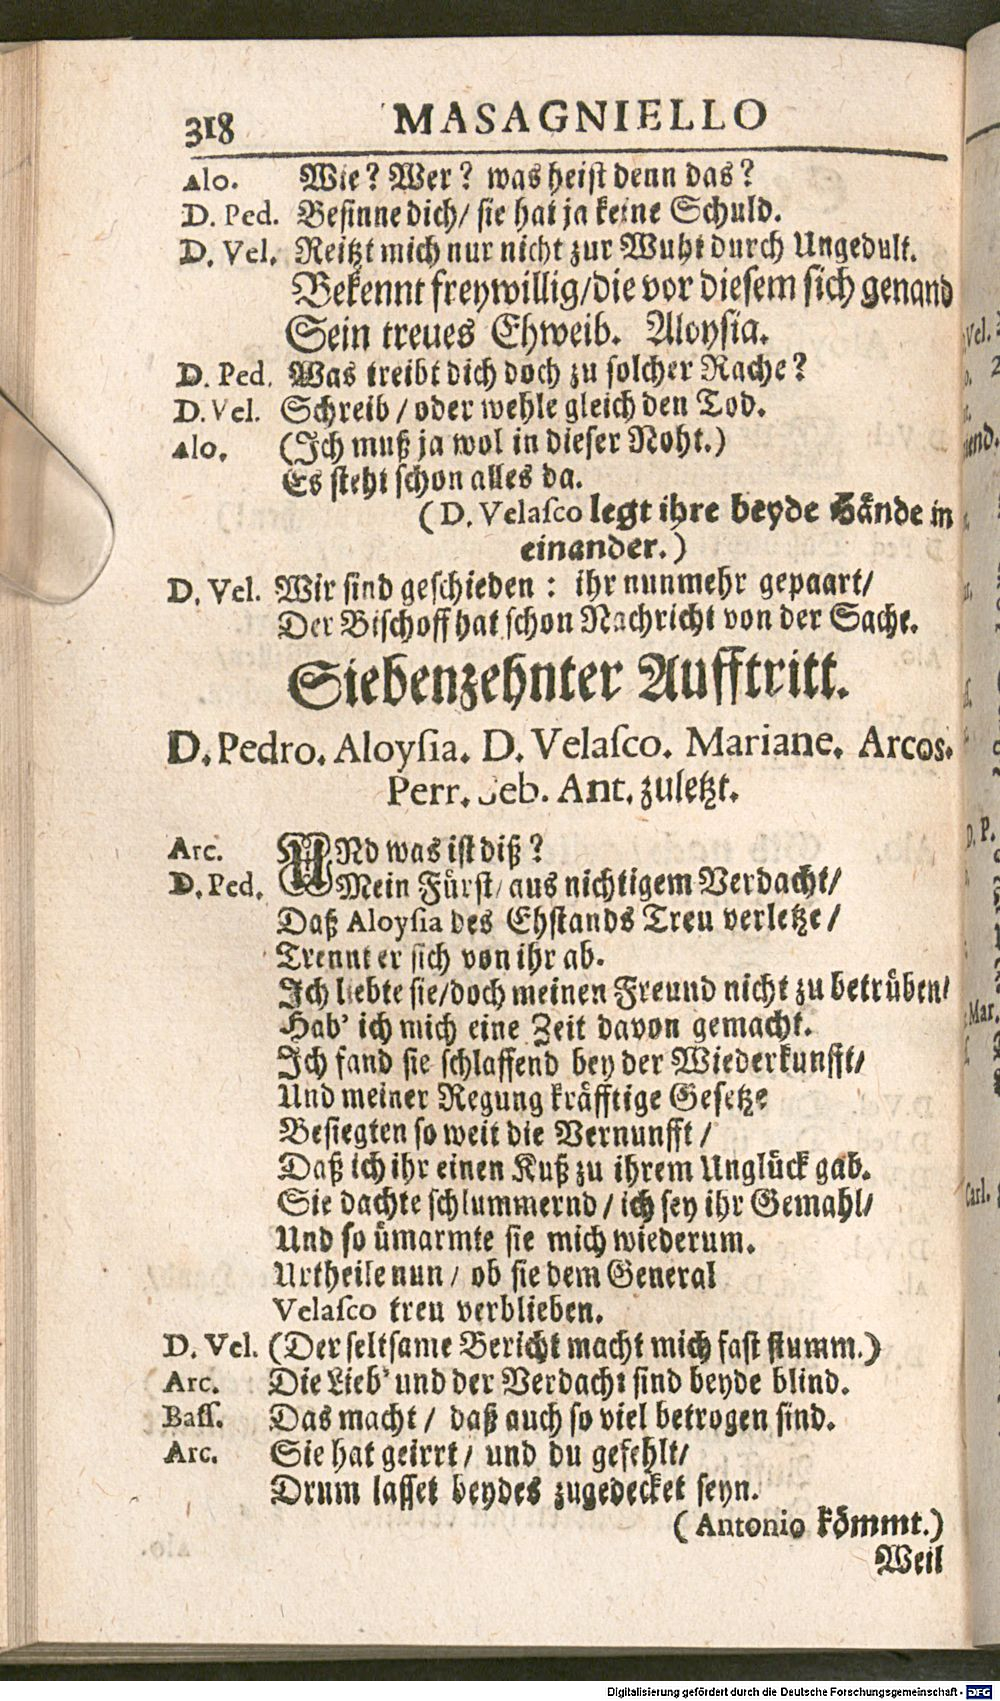 318 MASAGNIELLO
Alo. Wie? Wer? was heist denn das?
D. Ped. Besinne dich/ sie hat ja keine Schuld.
D. Vel. Reitzt mich nur nicht zur Wuht durch Ungedult.
Bekennt freywillig/die vor diesem sich genand
Sein treues Ehweib. Aloysia.
D. Ped. Was treibt dich doch zu solcher Rache?
D. Vel. Schreib / oder wehle gleich den Tod.
Alo. (Ich muß ja wol in dieser Noht.)
Es steht schon alles da.
(D. Velaſco legt ihre beyde Hände in
einander.)
D. Vel. Wir sind geschieden : ihr nunmehr gepaart/
Der Bischoff hat schon Nachricht von der Sache.
Siebenzehnter Aufftritt.
D. Pedro. Aloyſia. D. Velaſco. Mariane. Arcos.
Perr. Seb. Ant. zuletzt.
Arc. UNd was ist diß?
D. Ped. Mein Fürst/ aus nichtigem Verdacht/
Daß Aloyſia des Ehstands Treu verletze/
Trennt er sich von ihr ab.
Ich liebte sie/doch meinen Freund nicht zu betrüben/
Hab' ich mich eine Zeit davon gemacht.
Ich fand sie schlaffend bey der Wiederkunfft/
Und meiner Regung kräfftige Gesetze
Besiegten so weit die Vernunfft /
Daß ich ihr einen Kuß zu ihrem Unglück gab.
Sie dachte schlummernd / ich sey ihr Gemahl/
Und so ümarmte sie mich wiederum.
Urtheile nun / ob sie dem General
Velaſco treu verblieben.
D. Vel. (Der seltsame Bericht macht mich fast stumm.)
Arc. Die Lieb' und der Verdacht sind beyde blind.
Baſſ. Das macht / daß auch so viel betrogen sind.
Arc. Sie hat geirrt / und du gefehlt/
Drum lasset beydes zugedecket seyn.
(Antonio kömmt.)
Weil
Digitalisierung gefördert durch die Deutsche Forschungsgemeinschaft - DFG